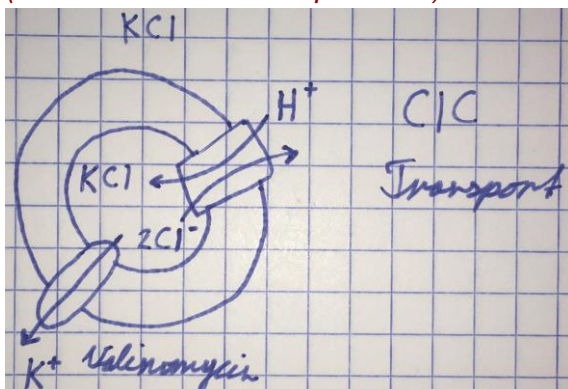 KCl
H⁺
ClC
Transport
KCl
2Cl⁻
K⁺
Valinomycin